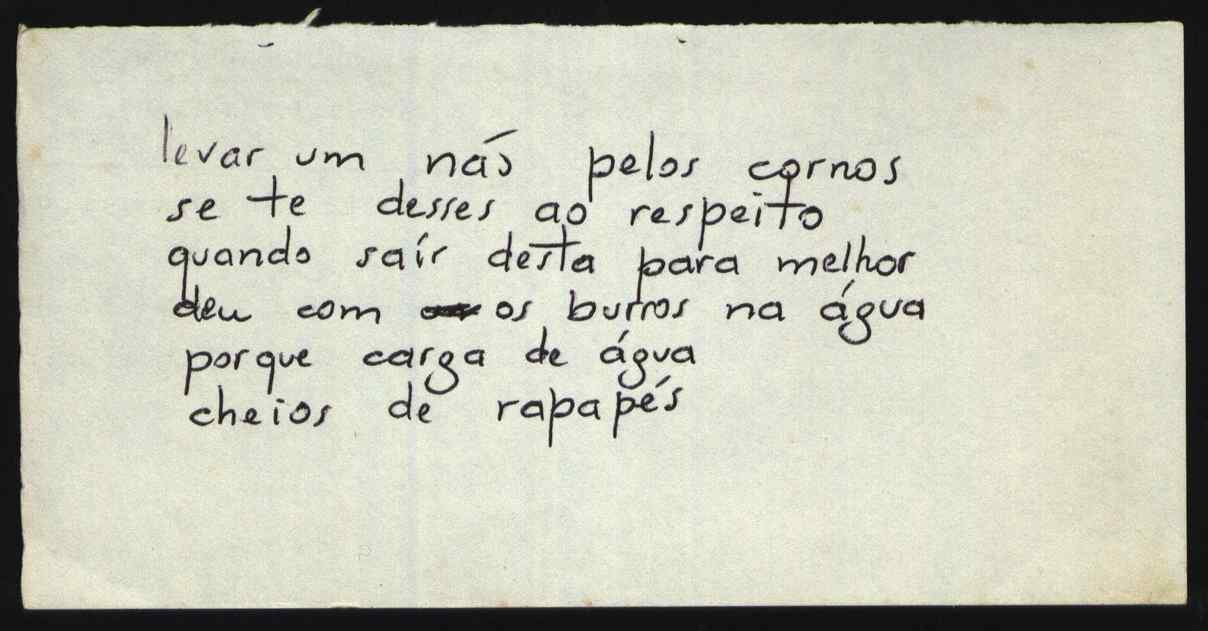 levar um nás pelos cornos
se te desses ao respeito
quando saír desta para melhor
deu com os burros na água
porque carga de água
cheios de rapapés